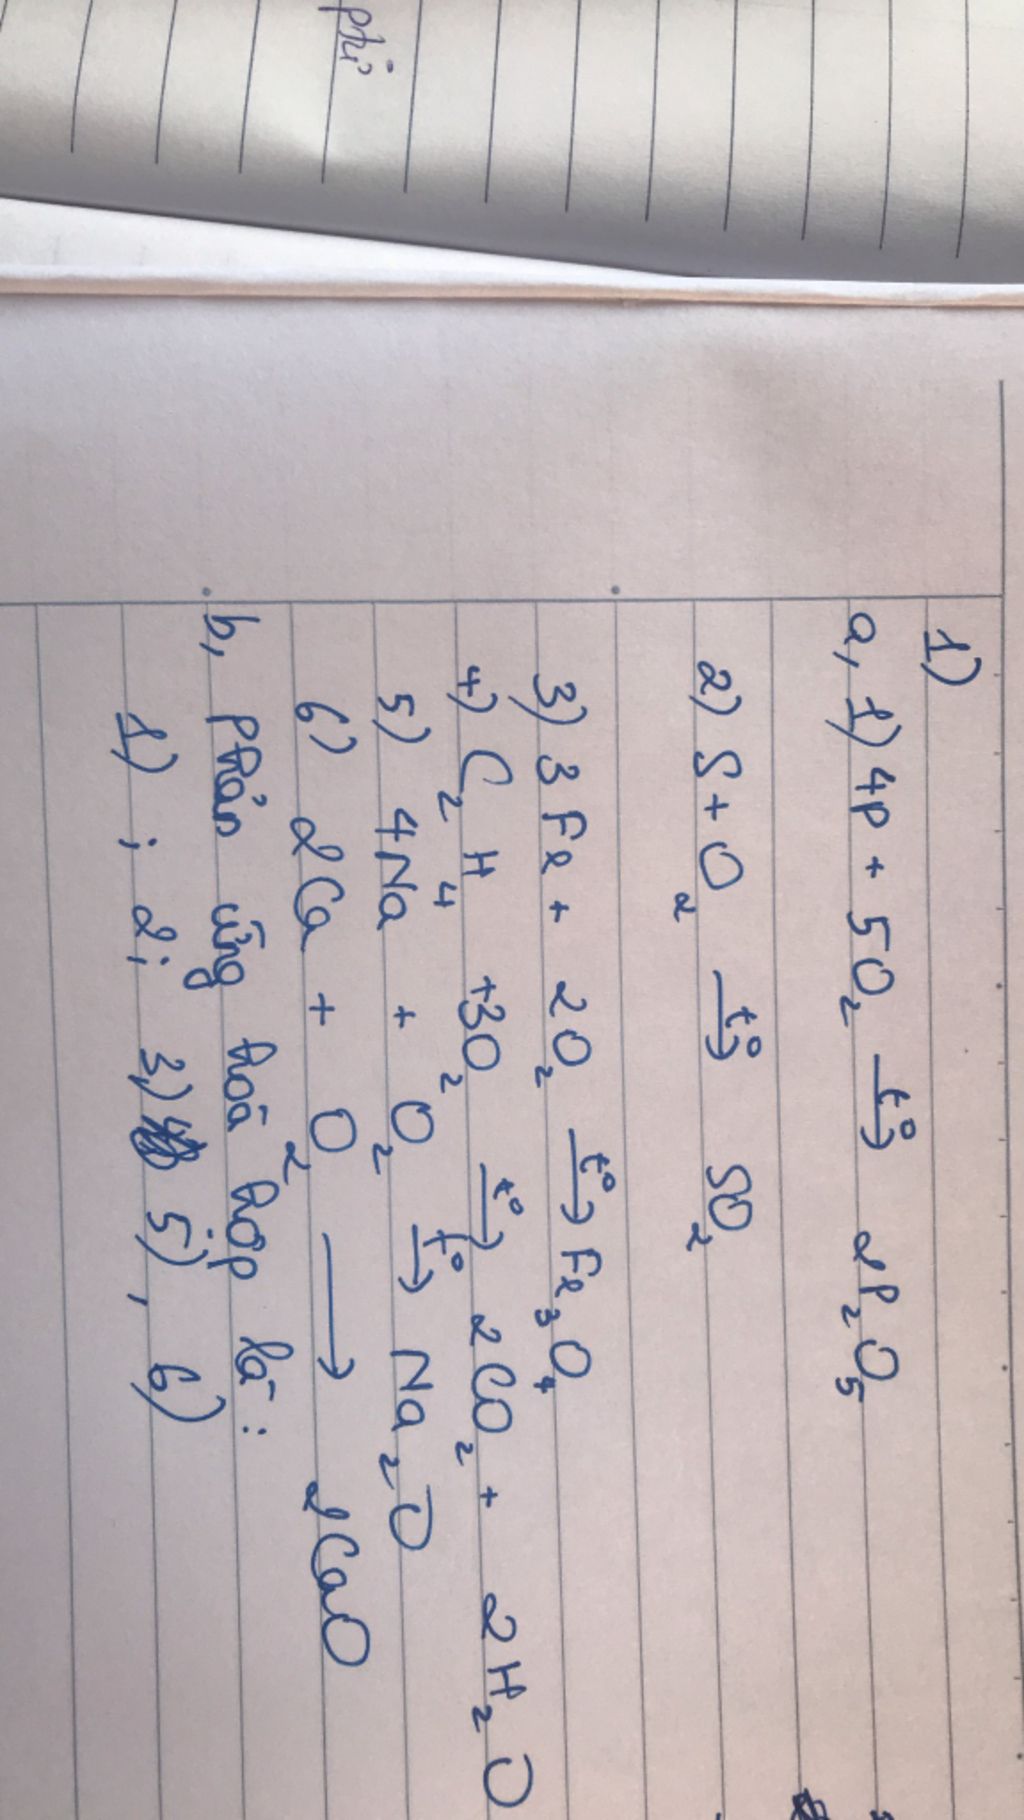 phủ
1)
a, 1) 4P + 5O₂ t° → 2P₂O₅
2) S + O₂ t° → SO₂
3) 3Fe + 2O₂ t° → Fe₃O₄
4) C₂H₄ + 3O₂ t° → 2CO₂ + 2H₂O
5) 4Na + O₂ t° → Na₂O
6) 2Ca + O₂ → 2CaO
b, phản ứng hoá hợp là:
1) ; 2; 3) 5) , 6)